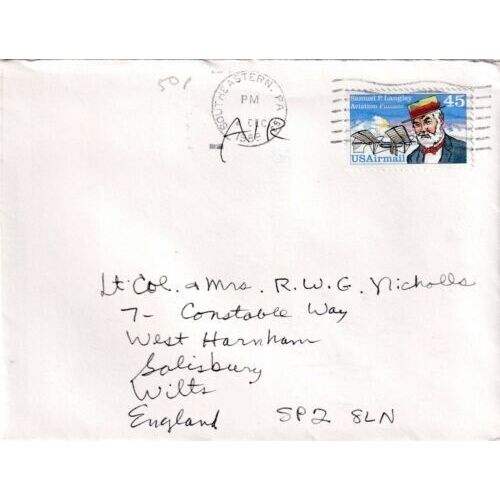 50p
SOUTHEASTERN, PA
PM
DEC
1988
AIR
Samuel P. Langley 45
Aviation Pioneer
USAirmail
Lt. Col. & Mrs. R. W. G. Nicholls
7- Constable Way
West Harnham
Salisbury
Wilts
England SP2 8LN